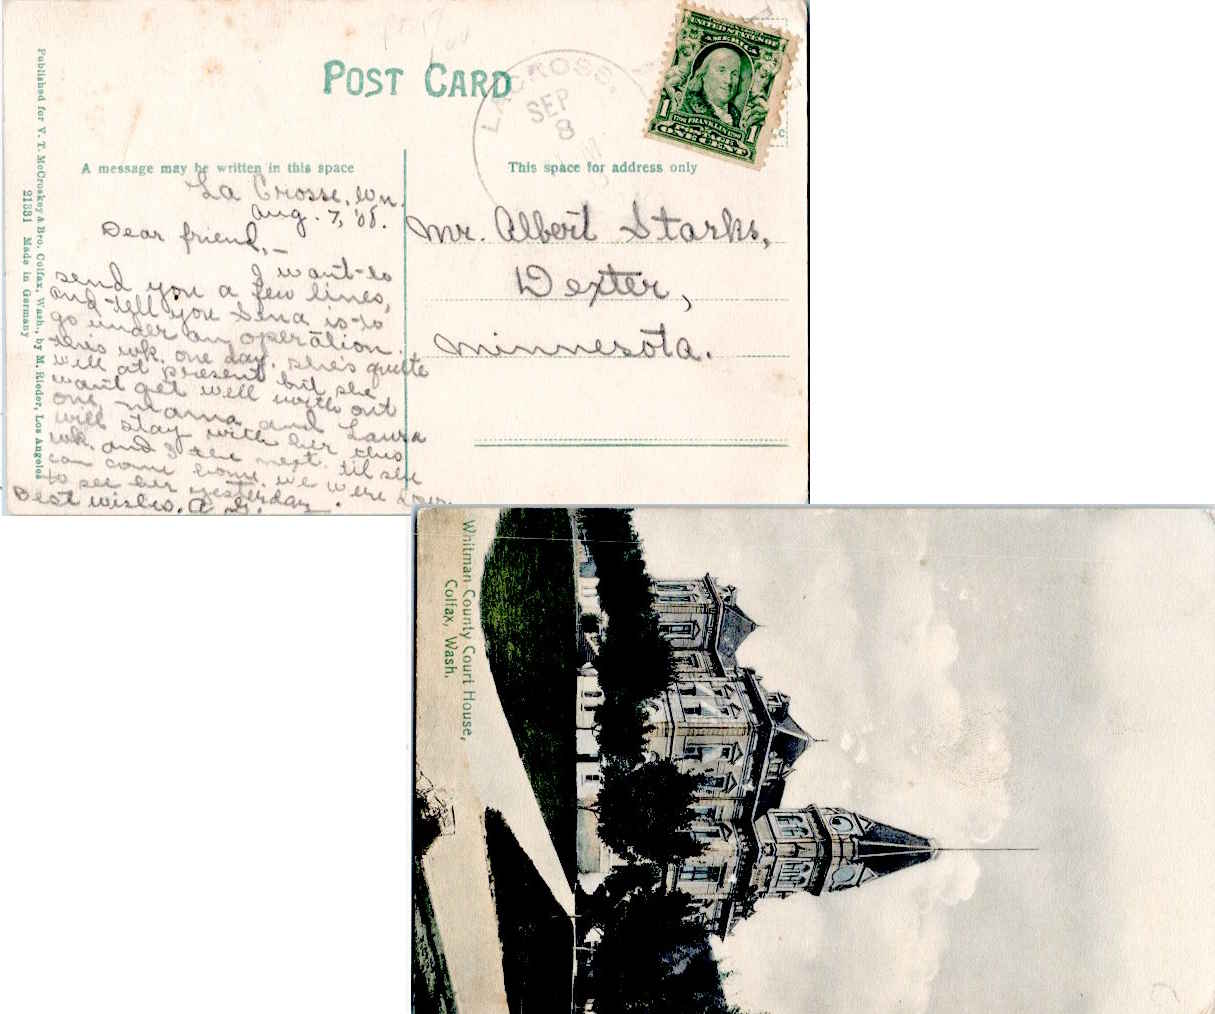 POST CARD
LACROSSE.
SEP
8
UNITED STATES OF
AMERICA
1 1
FRANKLIN
POSTAGE
ONE CENT
Published for V. T. McCroskey & Bro. Colfax, Wash., by M. Rieder, Los Angeles
21331 Made in Germany
A message may be written in this space
This space for address only
La Crosse, Wn.
Aug. 7, '08.
Dear friend,—
I want to
send you a few lines,
and tell you Lena is to
go under an operation
this wk. one day. she's quite
well at present but she
want get well with out
one, mama and Laura
will stay with her this
wk. and the next. til she
can come home. we were
to see her yesterday.
Best wishes. A. G.
Mr. Albert Starks,
Dexter,
Minnesota.
Whitman County Court House,
Colfax, Wash.